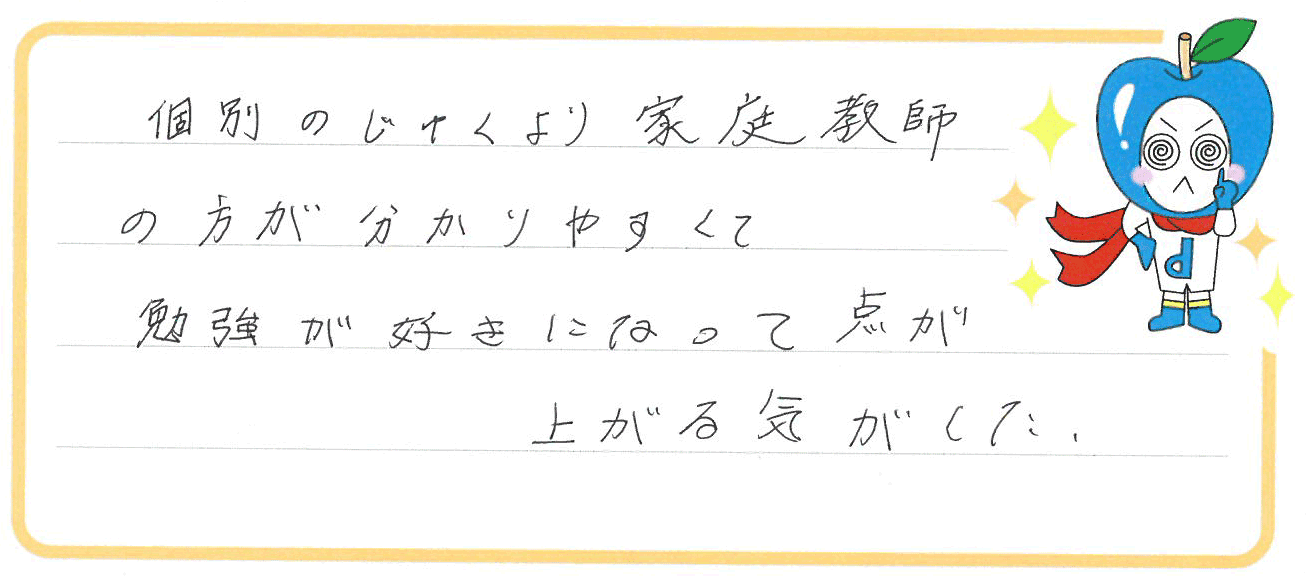 個別のじゅくより家庭教師
の方が分かりやすくて
勉強が好きになって点が
上がる気がした.
d